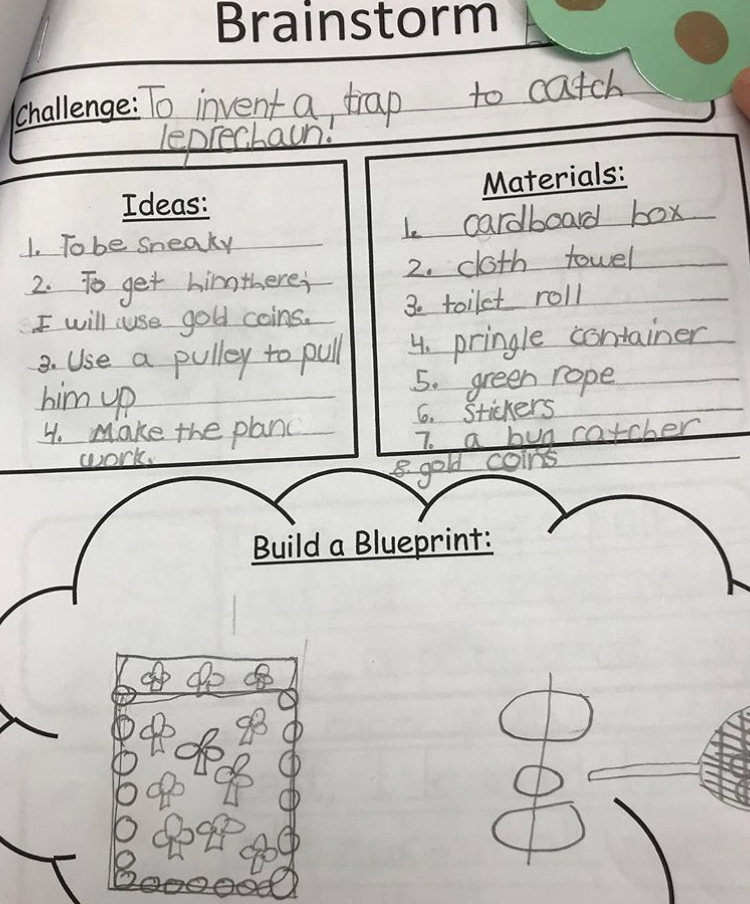 Brainstorm
Challenge: To invent a trap to catch
leprechaun!
Ideas:
1. To be sneaky
2. To get him there;
I will use gold coins.
3. Use a pulley to pull
him up
4. Make the plan
work.
Materials:
1. cardboard box
2. cloth towel
3. toilet roll
4. pringle container
5. green rope
6. Stickers
7. a bug catcher
8. gold coins
Build a Blueprint: